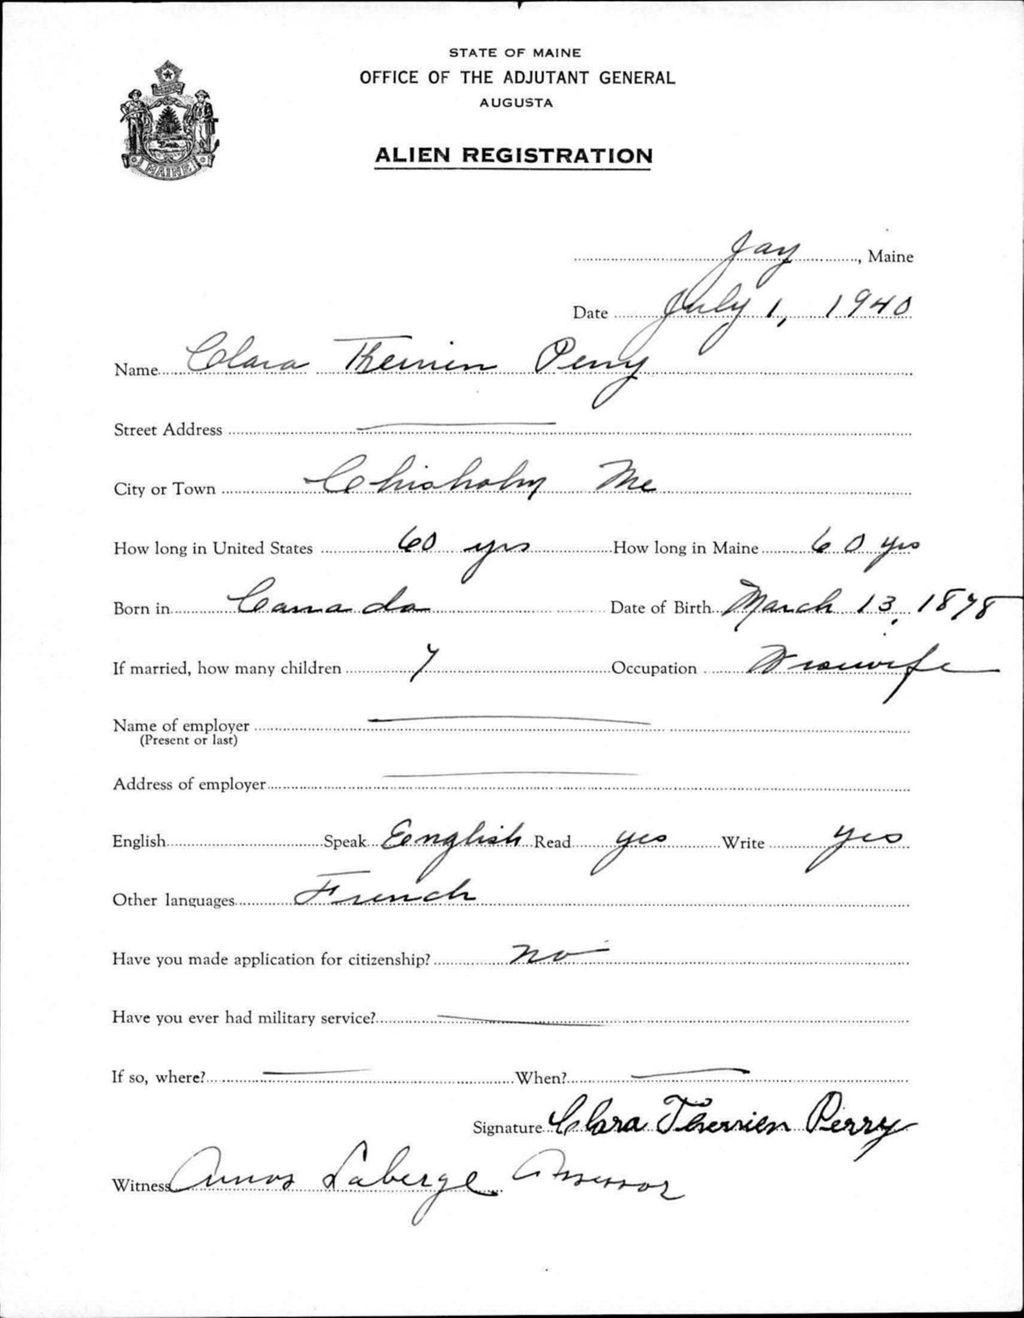 STATE OF MAINE
OFFICE OF THE ADJUTANT GENERAL
AUGUSTA
ALIEN REGISTRATION
MAINE
Jay, Maine
Date July 1, 1940
Name Clara Therrien Perry
Street Address
City or Town Chisholm Me
How long in United States 60 yrs How long in Maine 60 yrs
Born in Canada Date of Birth March 13, 1878
If married, how many children 7 Occupation Housewife
Name of employer
(Present or last)
Address of employer
English Speak English Read yes Write yes
Other languages French
Have you made application for citizenship? no
Have you ever had military service?
If so, where? When?
Signature Clara Therrien Perry
Witness Amos Laberge Assessor